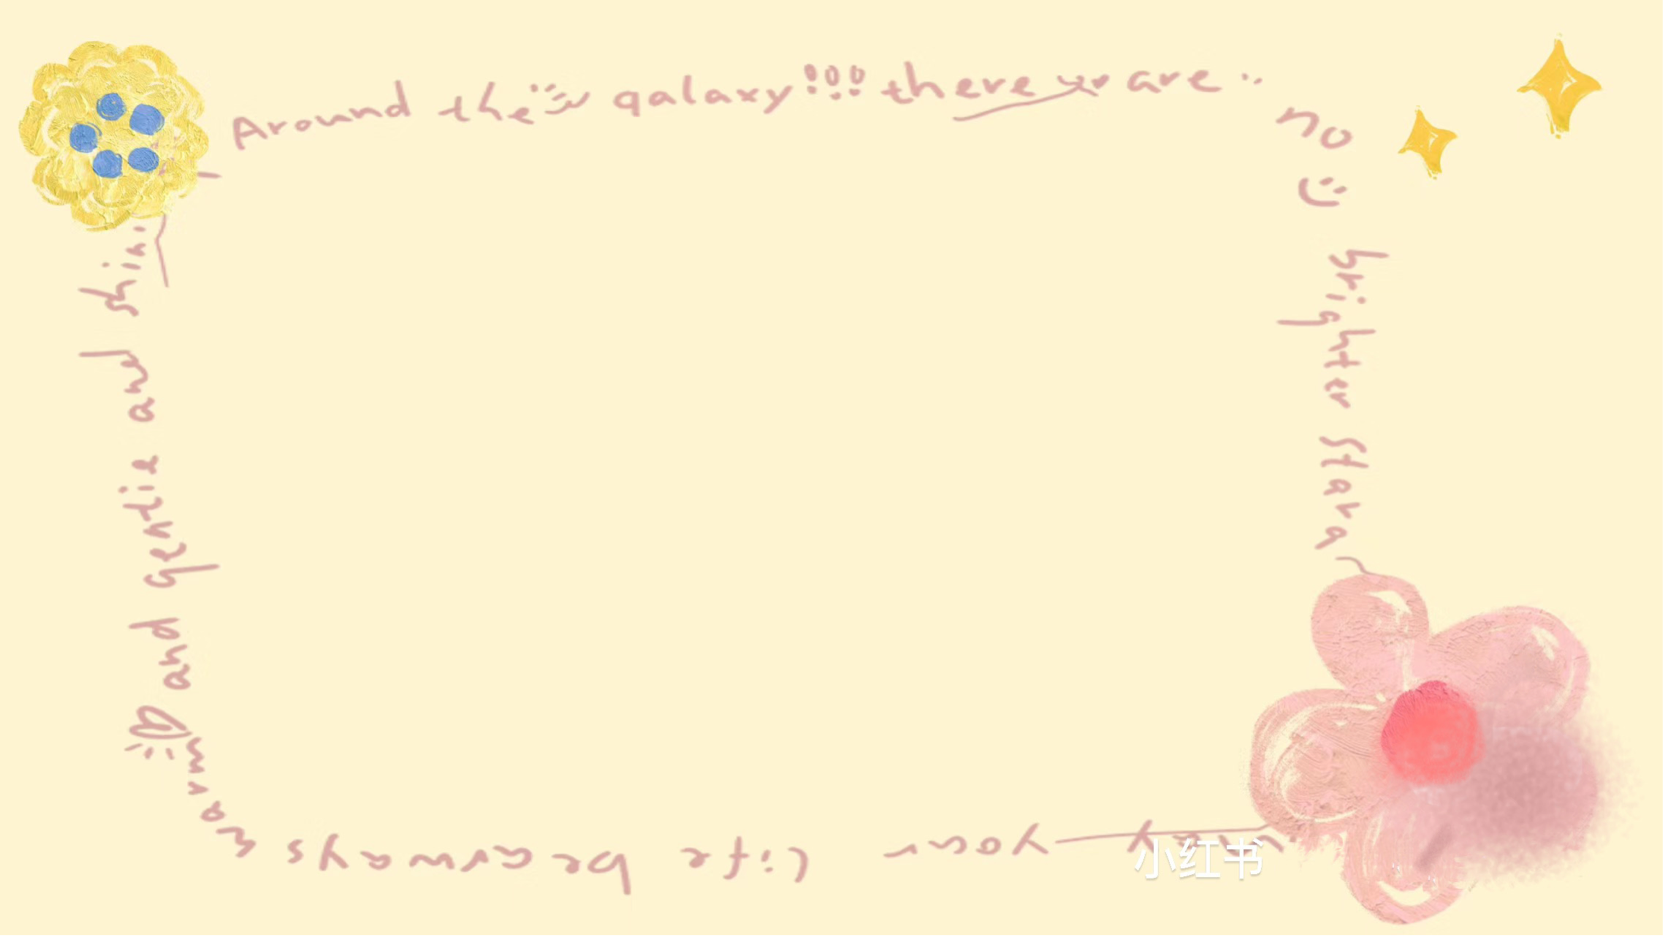 Around the galaxy!!! there are..
no
brighter stara
your life be arways
warm
and gentie and shin
小红书